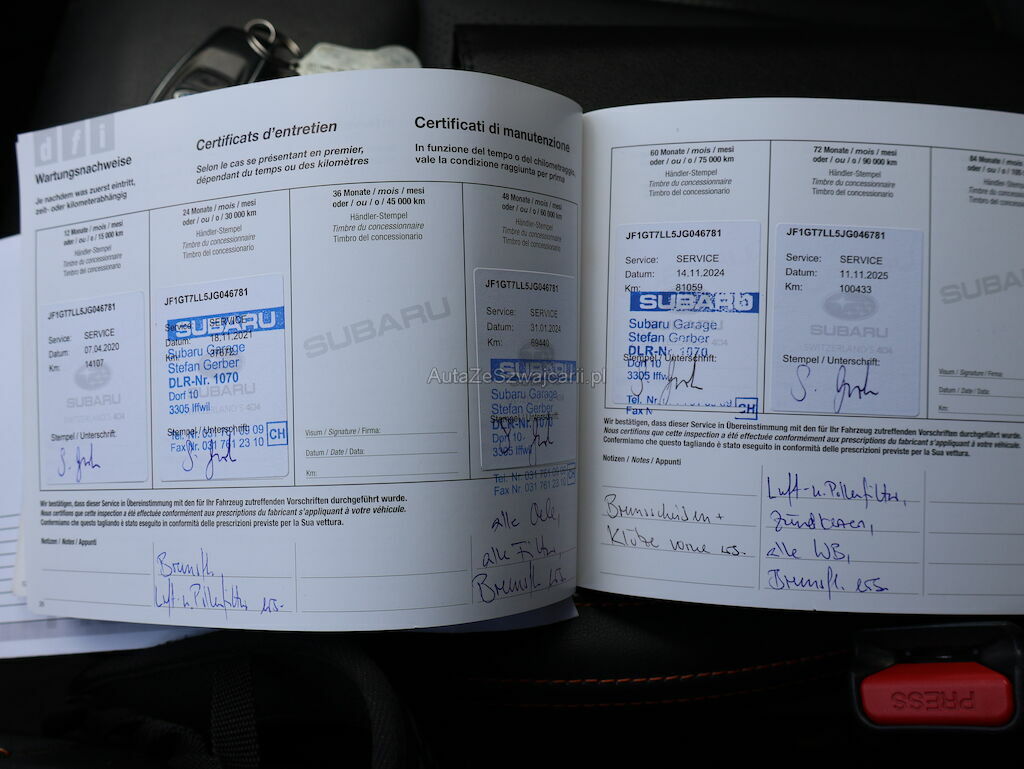 dfi
Wartungsnachweise
Je nachdem was zuerst eintritt,
zeit- oder kilometerabhängig
Certificats d'entretien
Selon le cas se présentant en premier,
dépendant du temps ou des kilomètres
Certificati di manutenzione
In funzione del tempo o del chilometraggio,
vale la condizione raggiunta per prima
12 Monate / mois / mesi
oder / ou / o / 15 000 km
Händler-Stempel
Timbre du concessionnaire
Timbro del concessionario
JF1GT7LL5JG046781
Service: SERVICE
Datum: 07.04.2020
Km: 14107
SUBARU
SWITZERLAND'S 4x4
Stempel / Unterschrift:
24 Monate / mois / mesi
oder / ou / o / 30 000 km
Händler-Stempel
Timbre du concessionnaire
Timbro del concessionario
JF1GT7LL5JG046781
Service: SERVICE
SUBARU
Datum: 18.11.2021
Subaru Garage
Stefan Gerber
DLR-Nr. 1070
Dorf 10
3305 Iffwil
Stempel / Unterschrift:
Tel. Nr. 031 761 09 09
Fax Nr. 031 761 23 10
CH
36 Monate / mois / mesi
oder / ou / o / 45 000 km
Händler-Stempel
Timbre du concessionnaire
Timbro del concessionario
SUBARU
Visum / Signature / Firma:
Datum / Date / Data:
Km:
48 Monate / mois / mesi
oder / ou / o / 60 000 km
Händler-Stempel
Timbre du concessionnaire
Timbro del concessionario
JF1GT7LL5JG046781
Service: SERVICE
Datum: 31.01.2024
Km: 69440
SUBARU
Subaru Garage
Stefan Gerber
DLR-Nr. 1070
Dorf 10
3305 Iffwil
Tel. Nr. 031 761 09 09
Fax Nr. 031 761 23 10
CH
Wir bestätigen, dass dieser Service in Übereinstimmung mit den für Ihr Fahrzeug zutreffenden Vorschriften durchgeführt wurde.
Nous certifions que cette inspection a été effectuée conformément aux prescriptions du fabricant s'appliquant à votre véhicule.
Confermiamo che questo tagliando è stato eseguito in conformità delle prescrizioni previste per la Sua vettura.
Notizen / Notes / Appunti
Bremsfl.
Luft- u. Pollenfilter ers.
alle Oele,
alle Filter
Bremsfl. ers.
60 Monate / mois / mesi
oder / ou / o / 75 000 km
Händler-Stempel
Timbre du concessionnaire
Timbro del concessionario
JF1GT7LL5JG046781
Service: SERVICE
Datum: 14.11.2024
Km: 81059
SUBARU
Subaru Garage
Stefan Gerber
DLR-Nr. 1070
Stempel / Unterschrift:
Dorf 10
3305 Iffwil
Tel. Nr.
Fax N
CH
72 Monate / mois / mesi
oder / ou / o / 90 000 km
Händler-Stempel
Timbre du concessionnaire
Timbro del concessionario
JF1GT7LL5JG046781
Service: SERVICE
Datum: 11.11.2025
Km: 100433
SUBARU
SWITZERLAND'S 4x4
Stempel / Unterschrift:
84 Monate / mois
oder / ou / o / 105
Händler-Stempel
Timbre du concess
Timbro del conces
SUBARU
Visum / Signature / Firma:
Datum / Date / Data:
Km:
Wir bestätigen, dass dieser Service in Übereinstimmung mit den für Ihr Fahrzeug zutreffenden Vorschriften durchgeführt wurde.
Nous certifions que cette inspection a été effectuée conformément aux prescriptions du fabricant s'appliquant à votre véhicule.
Confermiamo che questo tagliando è stato eseguito in conformità delle prescrizioni previste per la Sua vettura.
Notizen / Notes / Appunti
Bremsscheiben +
Klötze vorne ers.
Luft- u. Pollenfilter,
Zündkerzen,
alle WB,
Bremsfl. ers.
AutaZeSzwajcarii.pl
PRESS